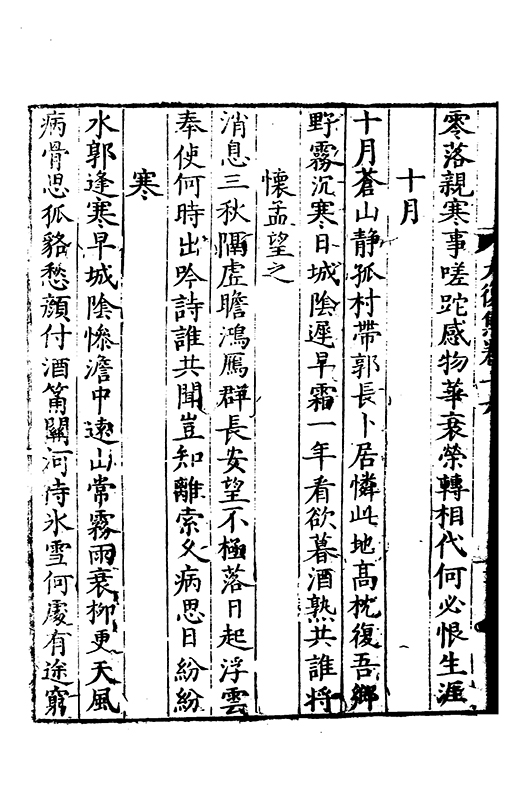 零落親寒事嗟跎感物華衰榮轉相代何必恨生涯
十月
十月蒼山静孤村帶郭長卜居憐此地高枕復吾鄉
野霧沉寒日城陰遲早霜一年看欲暮酒熟共誰將
懷孟望之
消息三秋隔虚瞻鴻鴈群長安望不極落日起浮雲
奉使何時出吟詩誰共聞豈知離索久病思日紛紛
寒
水郭逢寒早城陰慘澹中遠山常霧雨衰柳更天風
病骨思狐貉愁顔付酒筩關河待氷雪何處有途窮